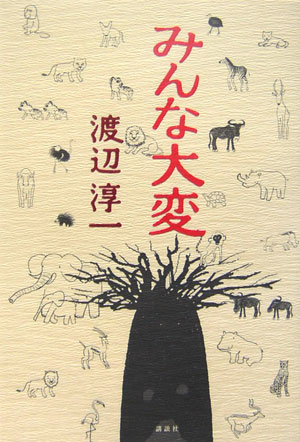 みんな大変
渡辺淳一
講談社